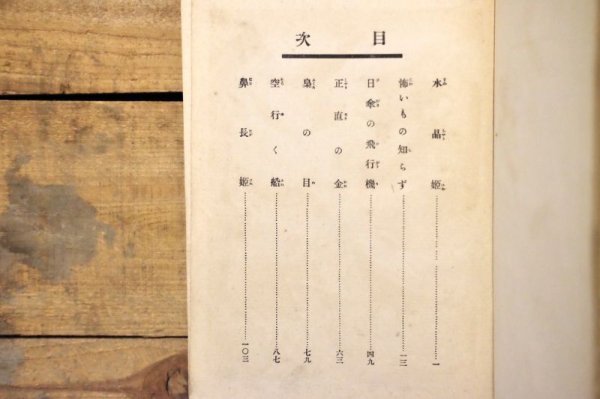 目次
水晶姫……一
怖いもの知らず……一三
日傘の飛行機……四九
正直の金……六三
梟の目……七九
空行く船……八七
鼻長姫……一〇三